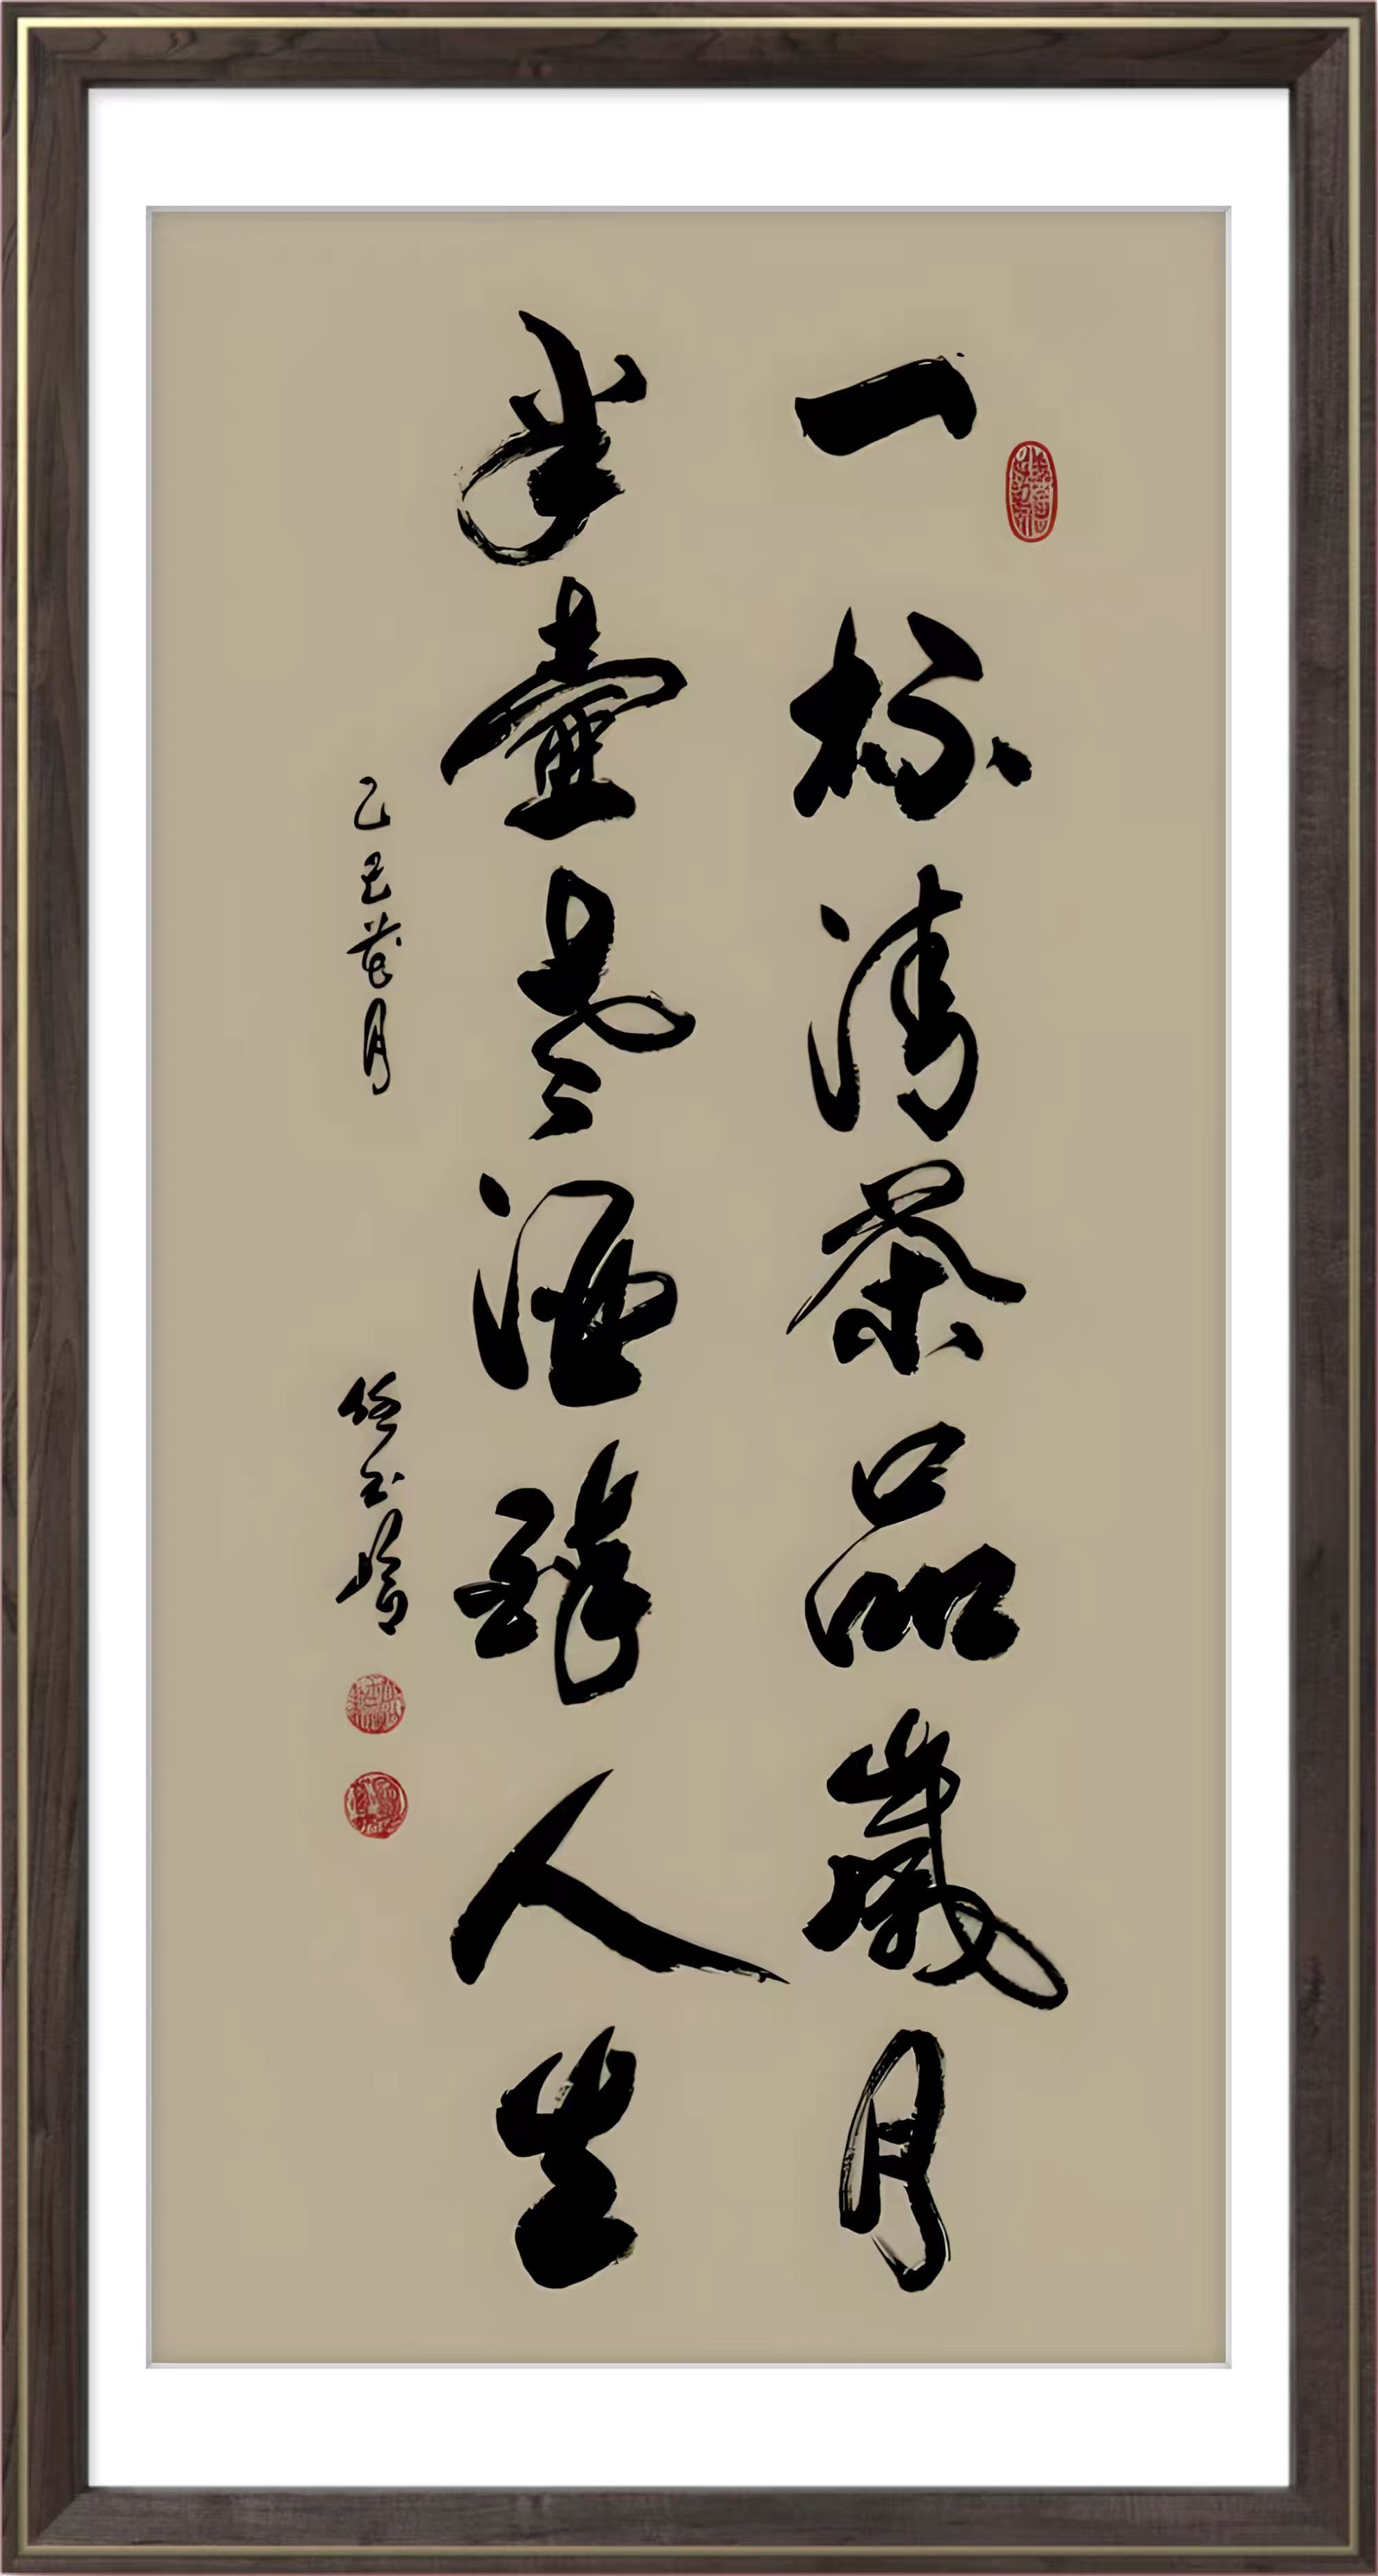 一杯清茶品歲月
半壺老酒醉人生
乙巳 月
任玉嶺